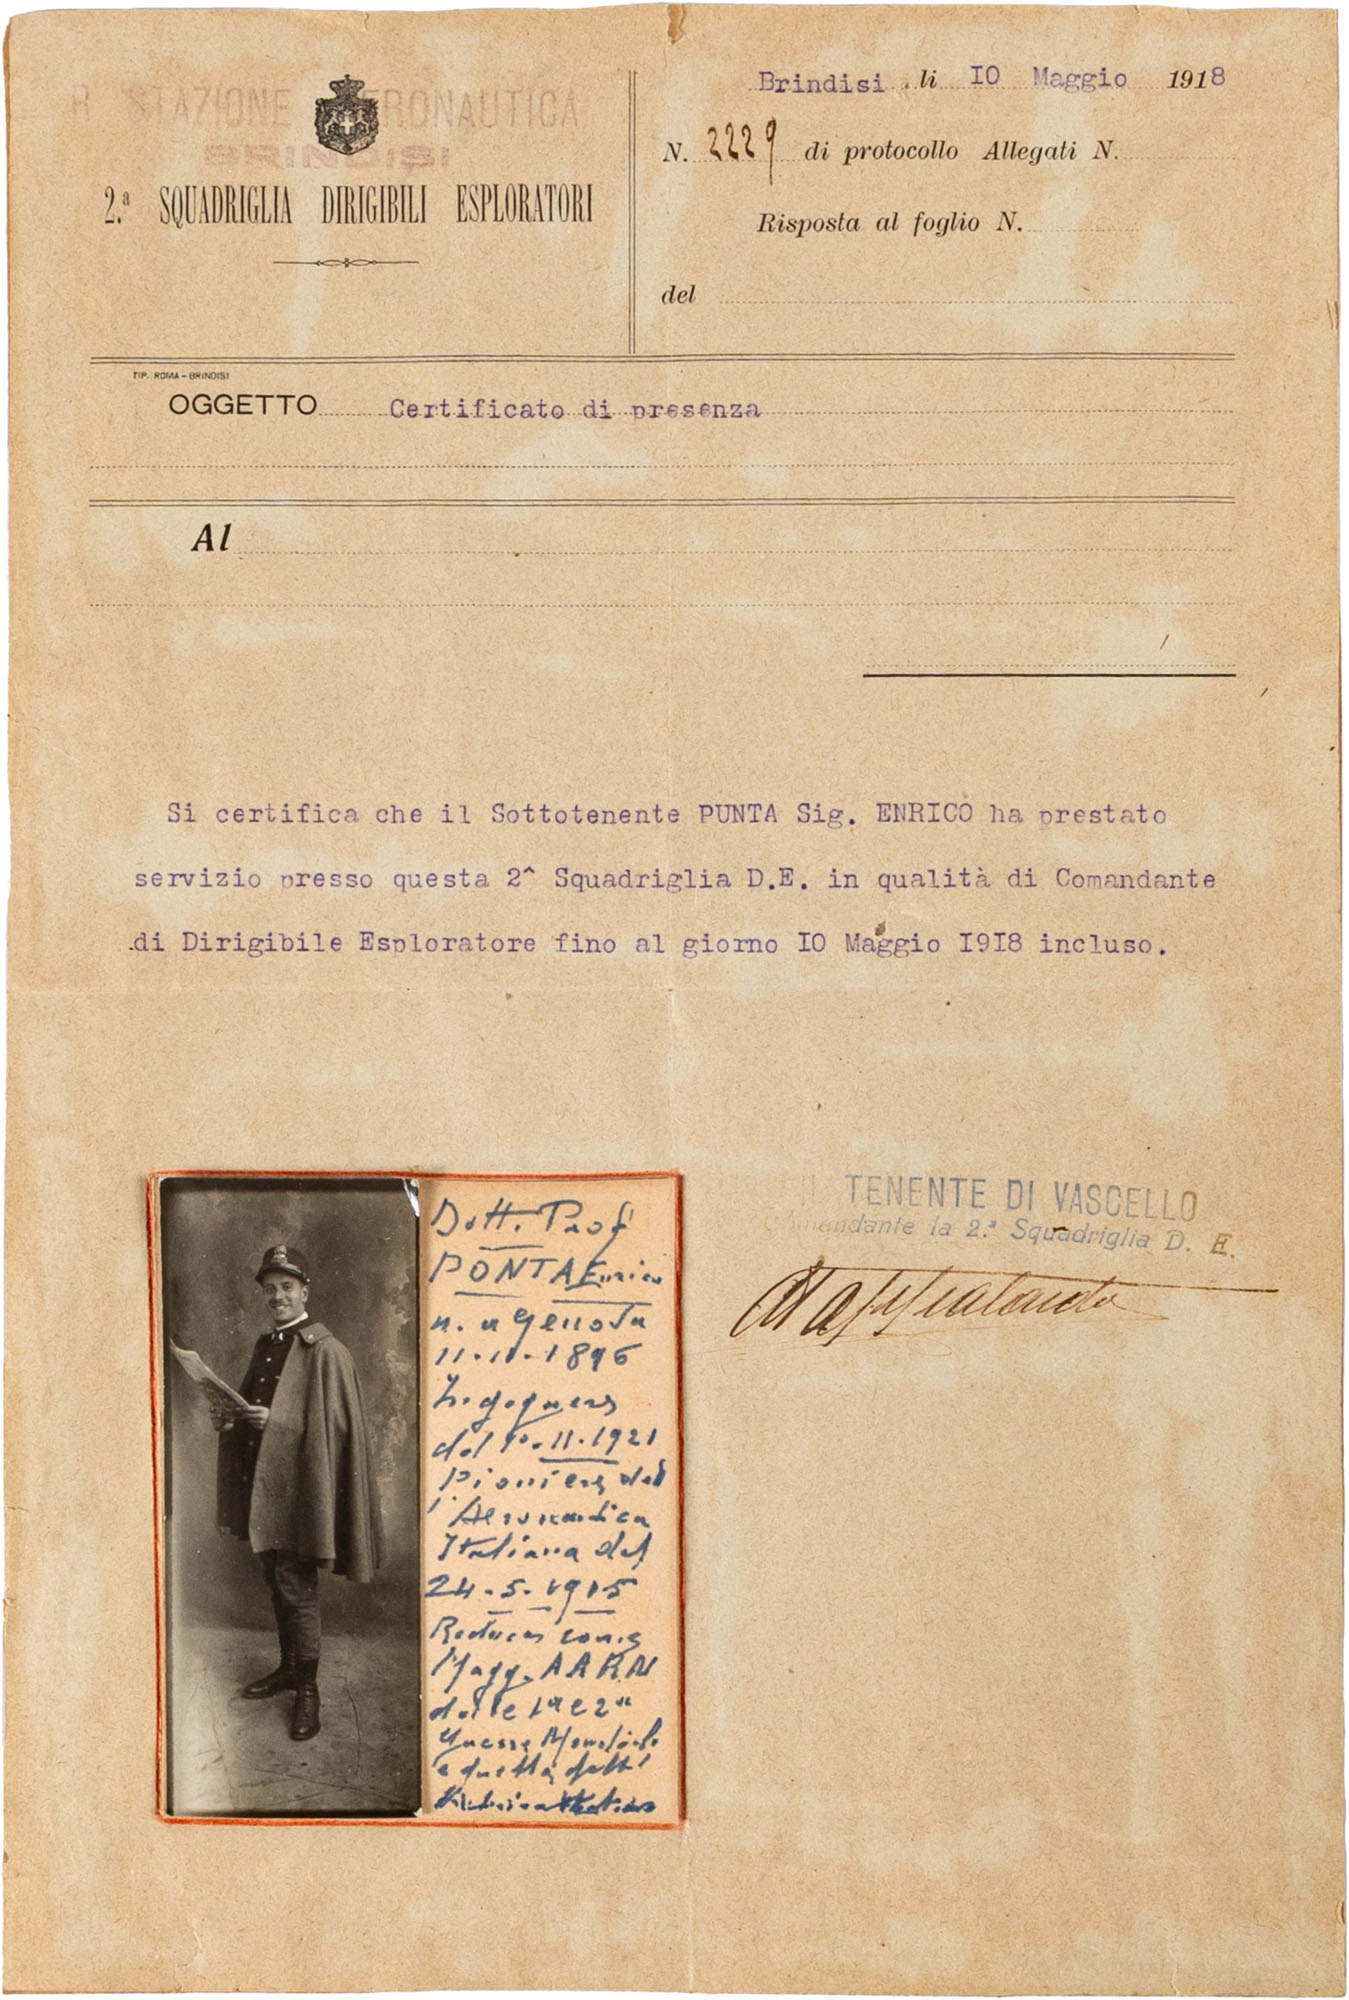 R. STAZIONE AERONAUTICA
BRINDISI
2.ª SQUADRIGLIA DIRIGIBILI ESPLORATORI
Brindisi li 10 Maggio 1918
N. 2229 di protocollo Allegati N.
Risposta al foglio N.
del
TIP. ROMA - BRINDISI
OGGETTO Certificato di presenza
Al
Si certifica che il Sottotenente PUNTA Sig. ENRICO ha prestato
servizio presso questa 2^ Squadriglia D.E. in qualità di Comandante
di Dirigibile Esploratore fino al giorno IO Maggio I9I8 incluso.
IL TENENTE DI VASCELLO
Comandante la 2.ª Squadriglia D. E.
Dott. Prof
PONTA Enrico
n. a Genova
11-11-1896
Ingegnere
del 1°-11-1921
Pioniere del
l'Aeronautica
Italiana del
24-5-1915
Reduce
Magg. AARN
delle 1ª e 2ª
Guerre Mondiali
e quella dell'